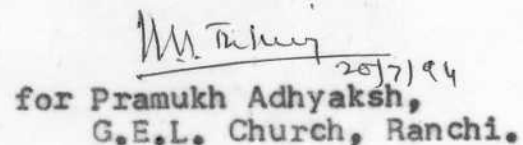 20/7/94
for Pramukh Adhyaksh,
G.E.L. Church, Ranchi.